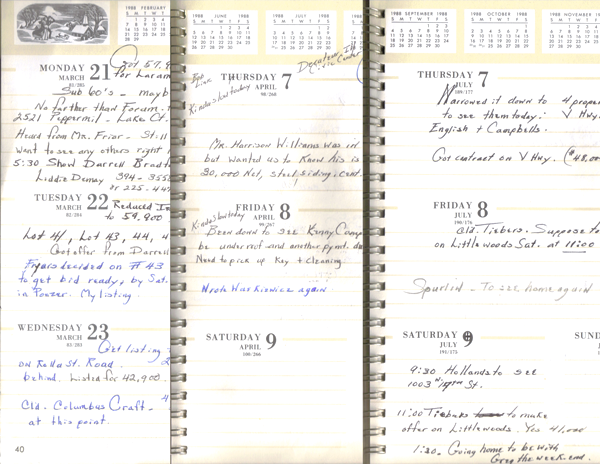 1988 FEBRUARY
S M T W T
MONDAY 21
MARCH
81/285
for Laram
Sub 60's - mayb
No farther than Foram.
2521 Peppermil - Lake Ct.
Heard from Mr. Friar - Still
want to see any others right
5:30 Show Darrell Bradt
Liddie Demay 394-355
or 225-44
TUESDAY 22
MARCH
82/284
Reduced
to 59,900
Lot H1, Lot H3, 44, 4
Got offer from Darrell
Fryars decided on # 43
to get bid ready, by Sat.
in Ponzer. My listing.
WEDNESDAY 23
MARCH
83/283
Get listing
on Rolla St. Road.
behind. Listed for 42,900.
Cld. Columbus Craft.
at this point.
40
1988 JUNE
S M T W T F S
1988 JULY
S M T W T F S
Decatur, Ill
Civic Center
Kinda slow today
THURSDAY 7
APRIL
98/268
Mr. Harrison Williams was in
but wanted us to know his is
30,000 Net, steel siding, cent.
Kinda slow today
FRIDAY 8
APRIL
99/267
Been down to see Kenny Camp
be under roof and another pymt. du
Need to pick up Key + cleaning
Wrote again
SATURDAY 9
APRIL
100/266
1988 SEPTEMBER
S M T W T F S
1988 OCTOBER
S M T W T F S
1988 NOVEMBER
S M T W T F
THURSDAY 7
JULY
189/177
Narrowed it down to 4 prope
to see them today: V Hwy.
English + Campbells.
Got contract on V Hwy. ($48,00
FRIDAY 8
JULY
190/176
Cld. Tiebers. Suppose to
on Littlewoods Sat. at 11:00
Spurlin - To see home again
SATURDAY 9
JULY
191/175
SUND
9:30 Hollands to see
1003 St.
11:00 Tiebers to make
offer on Littlewoods. Yes 41,000
1:30. Going home to be with
Greg the week-end.